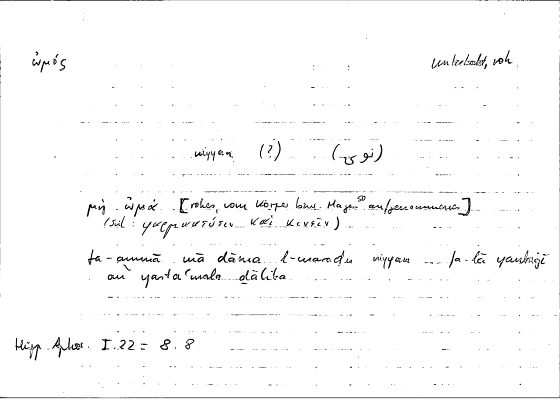 ὠμός unverkocht, roh
niyyan (?) (نوى)
μὴ ὠμά [rohes, vom Körper bzw. Magen aufgenommenes]
(scil. φαρμακεύειν καὶ κινεῖν)
fa-ammā mā dāma l-maraḍu niyyan fa-lā yanbaġī
an yastaʿmala ḏālika
Hipp. Aphor. I.22 = 8.8